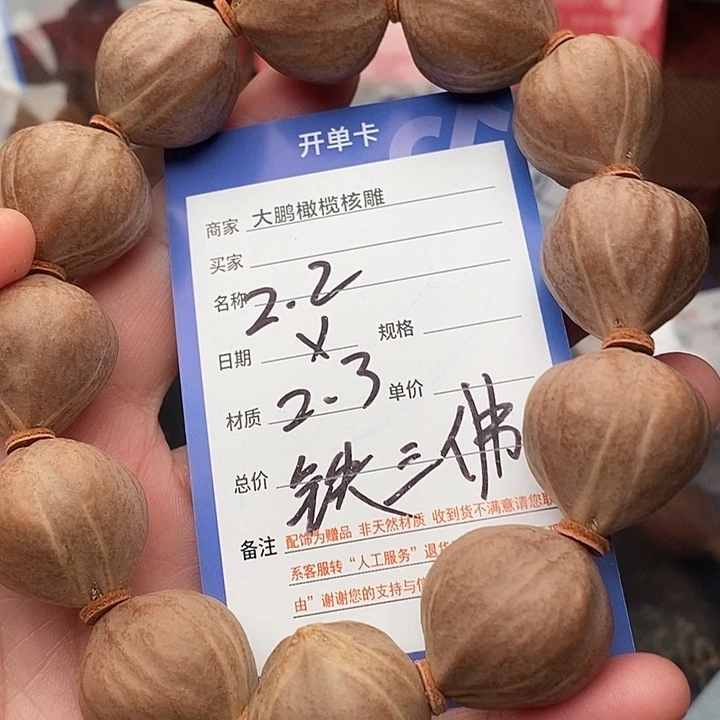 开单卡
商家 大鹏橄榄核雕
买家
名称 2.2
日期 X 规格
材质 2.3 单价
总价 铁三佛
备注 配饰为赠品 非天然材质 收到货不满意请您联
系客服转“人工服务”退货
由”谢谢您的支持与信